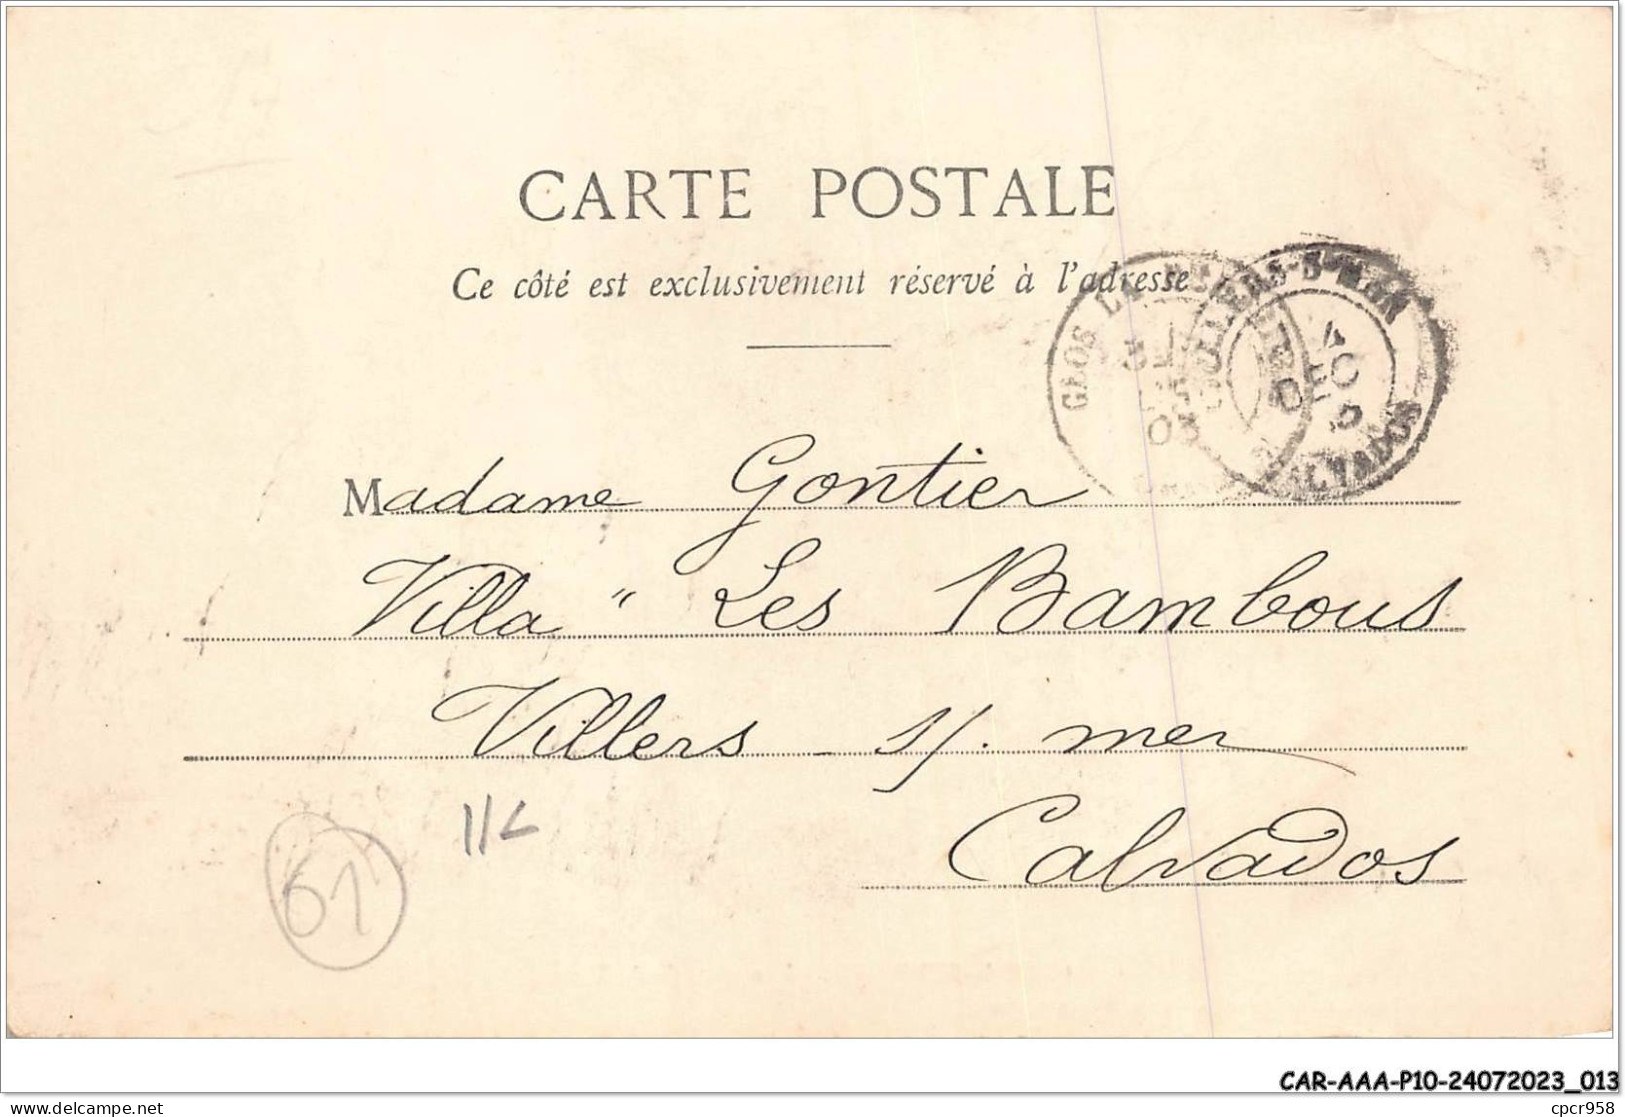 CARTE POSTALE
Ce côté est exclusivement réservé à l'adresse
GLOS
VILLERS-S-MER
CALVADOS
Madame Gontier
Villa " Les Bambous
Villers - s/. mer
Calvados
61
CAR-AAA-P10-24072023_013
delcampe.net
cpcr958